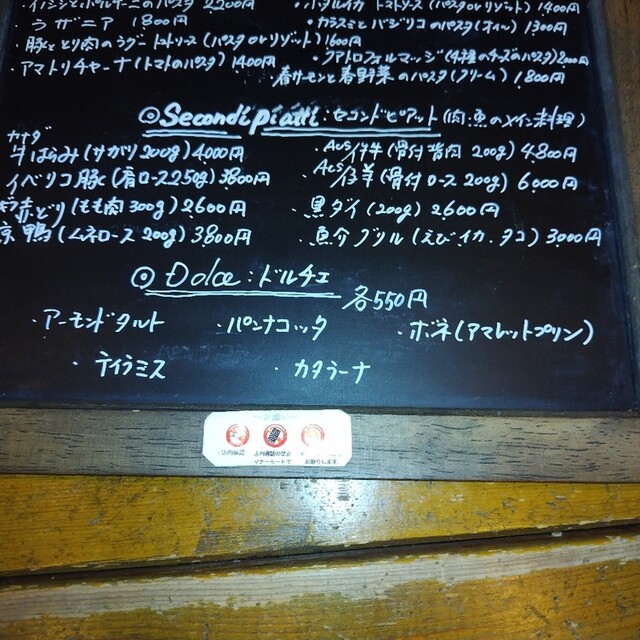 ポルチーニのパスタ 2200円
ラザニア 1800円
豚ととり肉のラグートマトソース(パスタorリゾット)1600円
アマトリチャーナ(トマトのパスタ)1400円
ホタルイカ トマトソース(パスタorリゾット)1400円
カラスミとバジリコのパスタ(オイル)1300円
クアトロフォルマッジ(4種のチーズのパスタ)2000円
春サーモンと春野菜のパスタ(クリーム)1.800円
◎Secondi piatti:セコンドピアット(肉・魚のメイン料理)
カナダ
牛はらみ(サガリ200g)4000円
イベリコ豚(肩ロース250g)3800円
赤どり(もも肉300g)2.600円
京鴨(ムネロース200g)3800円
・AUS/仔牛(骨付背肉 200g)4.800円
・AUS/仔羊(骨付ロース 200g)6.000円
・黒ダイ(200g)2600円
・魚介グリル(えび、イカ、タコ)3.000円
◎Dolce:ドルチェ
各550円
・アーモンドタルト ・パンナコッタ ・ボネ(アマレットプリン)
・ティラミス ・カタラーナ
店内通話の禁止
マナーモードで
お断りします。